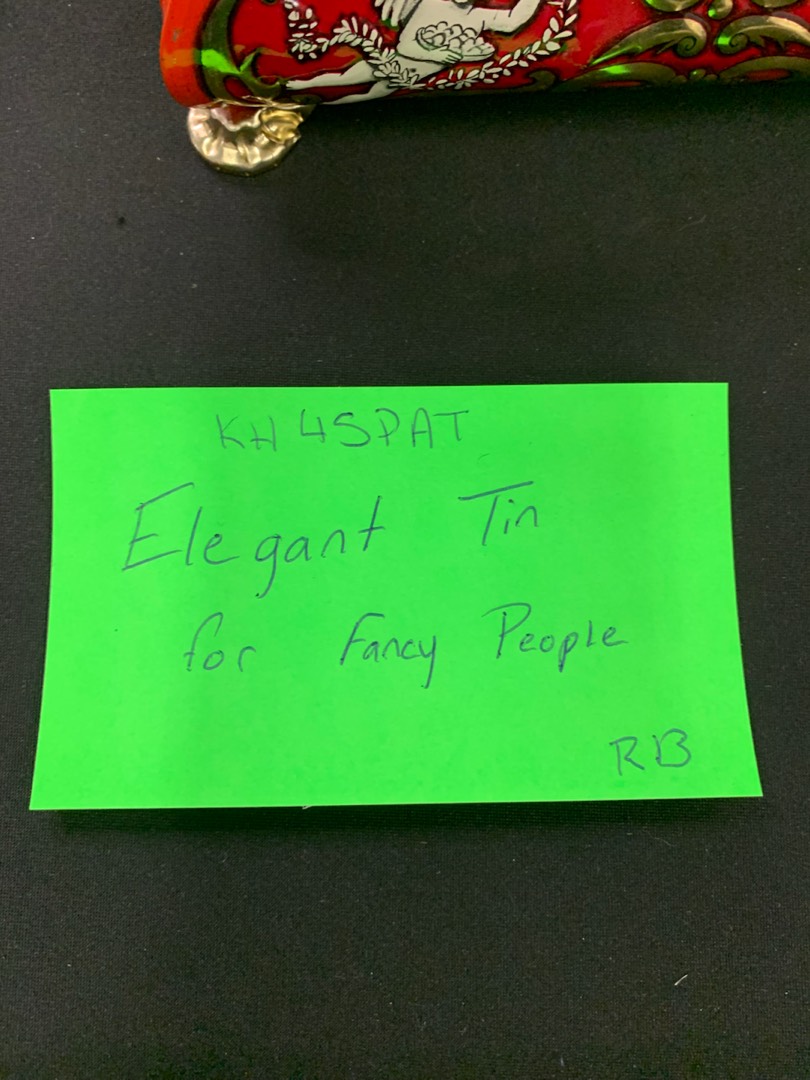 KH 4SPAT
Elegant Tin
for Fancy People
RB